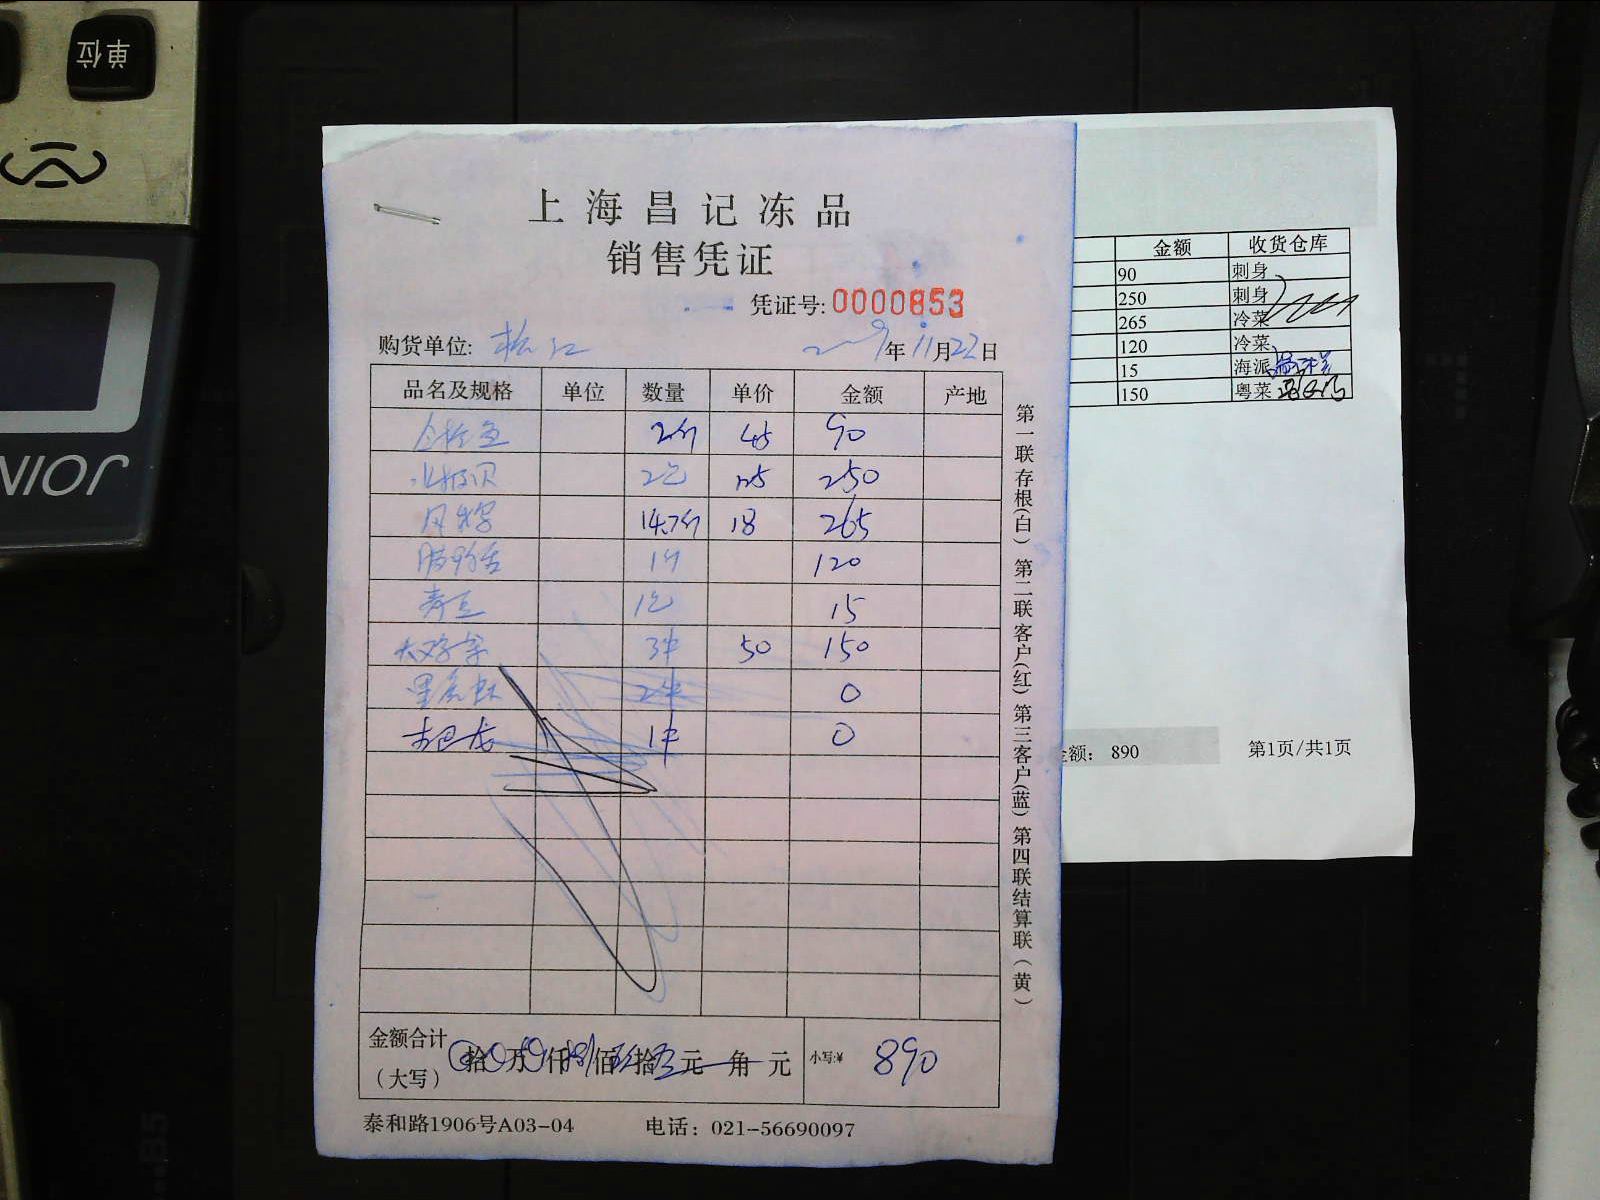 单位
JOIN
上海昌记冻品
销售凭证
凭证号:0000853
购货单位: 松江 2019年11月22日
品名及规格 单位 数量 单价 金额 产地
2斤 45 90
北极贝 2包 125 250
14.7斤 18 265
1斤 120
青豆 1包 15
3件 50 150
黑虎虾 2件 0
1件 0
金额合计
(大写) 拾 万 仟 捌 佰 拾 元 角 元 小写:¥ 890
泰和路1906号A03-04 电话: 021-56690097
第一联存根(白) 第二联客户(红) 第三客户(蓝) 第四联结算联(黄)
金额 收货仓库
90 刺身
250 刺身
265 冷菜
120 冷菜
15 海派
150 粤菜
金额: 890 第1页/共1页